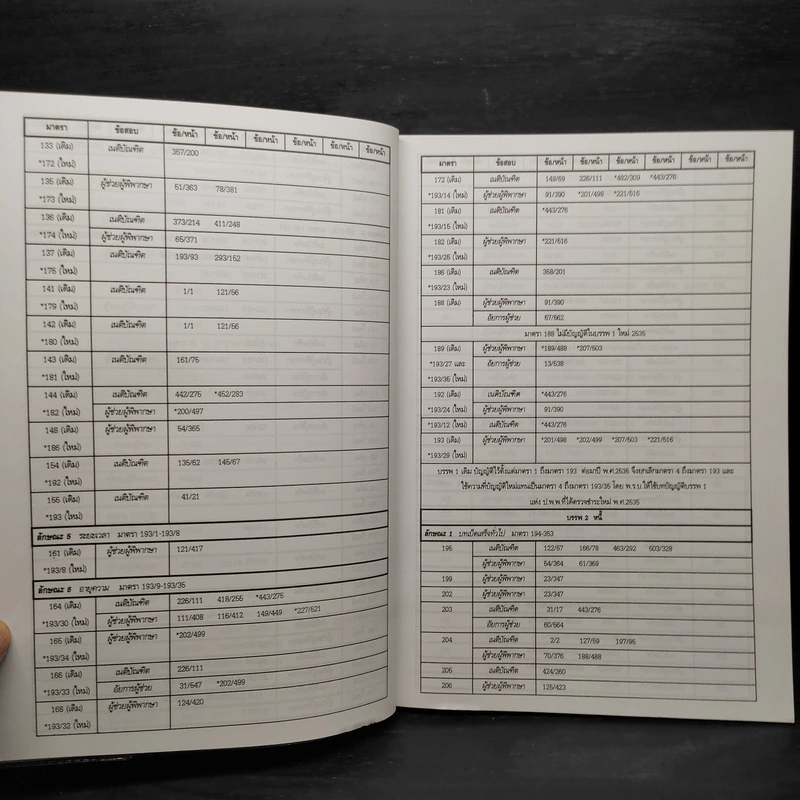 มาตรา ข้อสอบ ข้อ/หน้า ข้อ/หน้า ข้อ/หน้า ข้อ/หน้า ข้อ/หน้า ข้อ/หน้า
133 (เดิม) เนติบัณฑิต 367/200
*172 (ใหม่)
135 (เดิม) ผู้ช่วยผู้พิพากษา 51/363 78/381
*173 (ใหม่)
136 (เดิม) เนติบัณฑิต 373/214 411/248
*174 (ใหม่) ผู้ช่วยผู้พิพากษา 65/371
137 (เดิม) เนติบัณฑิต 193/93 293/152
*175 (ใหม่)
141 (เดิม) เนติบัณฑิต 1/1 121/56
*179 (ใหม่)
142 (เดิม) เนติบัณฑิต 1/1 121/56
*180 (ใหม่)
143 (เดิม) เนติบัณฑิต 161/75
*181 (ใหม่)
144 (เดิม) เนติบัณฑิต 442/275 *452/283
*182 (ใหม่) ผู้ช่วยผู้พิพากษา *200/497
148 (เดิม) ผู้ช่วยผู้พิพากษา 54/365
*186 (ใหม่)
154 (เดิม) เนติบัณฑิต 135/62 145/67
*192 (ใหม่)
155 (เดิม) เนติบัณฑิต 41/21
*193 (ใหม่)
ลักษณะ 5 ระยะเวลา มาตรา 193/1-193/8
161 (เดิม) ผู้ช่วยผู้พิพากษา 121/417
*193/8 (ใหม่)
ลักษณะ 6 อายุความ มาตรา 193/9-193/35
164 (เดิม) เนติบัณฑิต 226/111 418/255 *443/275
*193/30 (ใหม่) ผู้ช่วยผู้พิพากษา 111/408 116/412 149/449 *227/521
165 (เดิม) ผู้ช่วยผู้พิพากษา *202/499
*193/34 (ใหม่)
166 (เดิม) เนติบัณฑิต 226/111
*193/33 (ใหม่) อัยการผู้ช่วย 31/547 *202/499
168 (เดิม) ผู้ช่วยผู้พิพากษา 124/420
*193/32 (ใหม่)
มาตรา ข้อสอบ ข้อ/หน้า ข้อ/หน้า ข้อ/หน้า ข้อ/หน้า ข้อ/หน้า ข้อ/หน้า
172 (เดิม) เนติบัณฑิต 149/69 226/111 *482/309 *443/276
*193/14 (ใหม่) ผู้ช่วยผู้พิพากษา 91/390 *201/498 *221/516
181 (เดิม) เนติบัณฑิต *443/276
*193/15 (ใหม่)
182 (เดิม) ผู้ช่วยผู้พิพากษา *221/516
*193/25 (ใหม่)
186 (เดิม) เนติบัณฑิต 368/201
*193/23 (ใหม่)
188 (เดิม) ผู้ช่วยผู้พิพากษา 91/390
อัยการผู้ช่วย 67/562
มาตรา 188 ไม่มีบัญญัติในบรรพ 1 ใหม่ 2535
189 (เดิม) ผู้ช่วยผู้พิพากษา *189/488 *207/503
*193/27 และ อัยการผู้ช่วย 13/538
*193/35 (ใหม่)
192 (เดิม) เนติบัณฑิต *443/276
*193/24 (ใหม่) ผู้ช่วยผู้พิพากษา 91/390
*193/12 (ใหม่) เนติบัณฑิต *443/276
193 (เดิม) ผู้ช่วยผู้พิพากษา *201/498 *202/499 *207/503 *221/516
*193/29 (ใหม่)
บรรพ 1 เดิม บัญญัติไว้ตั้งแต่มาตรา 1 ถึงมาตรา 193 ต่อมาปี พ.ศ.2535 จึงยกเลิกมาตรา 4 ถึงมาตรา 193 และ
ใช้ความที่บัญญัติใหม่แทนเป็นมาตรา 4 ถึงมาตรา 193/35 โดย พ.ร.บ.ให้ใช้บทบัญญัติบรรพ 1
แห่ง ป.พ.พ.ที่ได้ตรวจชำระใหม่ พ.ศ.2535
บรรพ 2 หนี้
ลักษณะ 1 บทเบ็ดเสร็จทั่วไป มาตรา 194-353
195 เนติบัณฑิต 122/57 166/78 463/292 503/328
ผู้ช่วยผู้พิพากษา 54/364 61/369
199 ผู้ช่วยผู้พิพากษา 23/347
202 ผู้ช่วยผู้พิพากษา 23/347
203 เนติบัณฑิต 31/17 443/276
อัยการผู้ช่วย 60/564
204 เนติบัณฑิต 2/2 127/59 197/95
ผู้ช่วยผู้พิพากษา 70/376 188/488
205 เนติบัณฑิต 424/260
206 ผู้ช่วยผู้พิพากษา 125/423